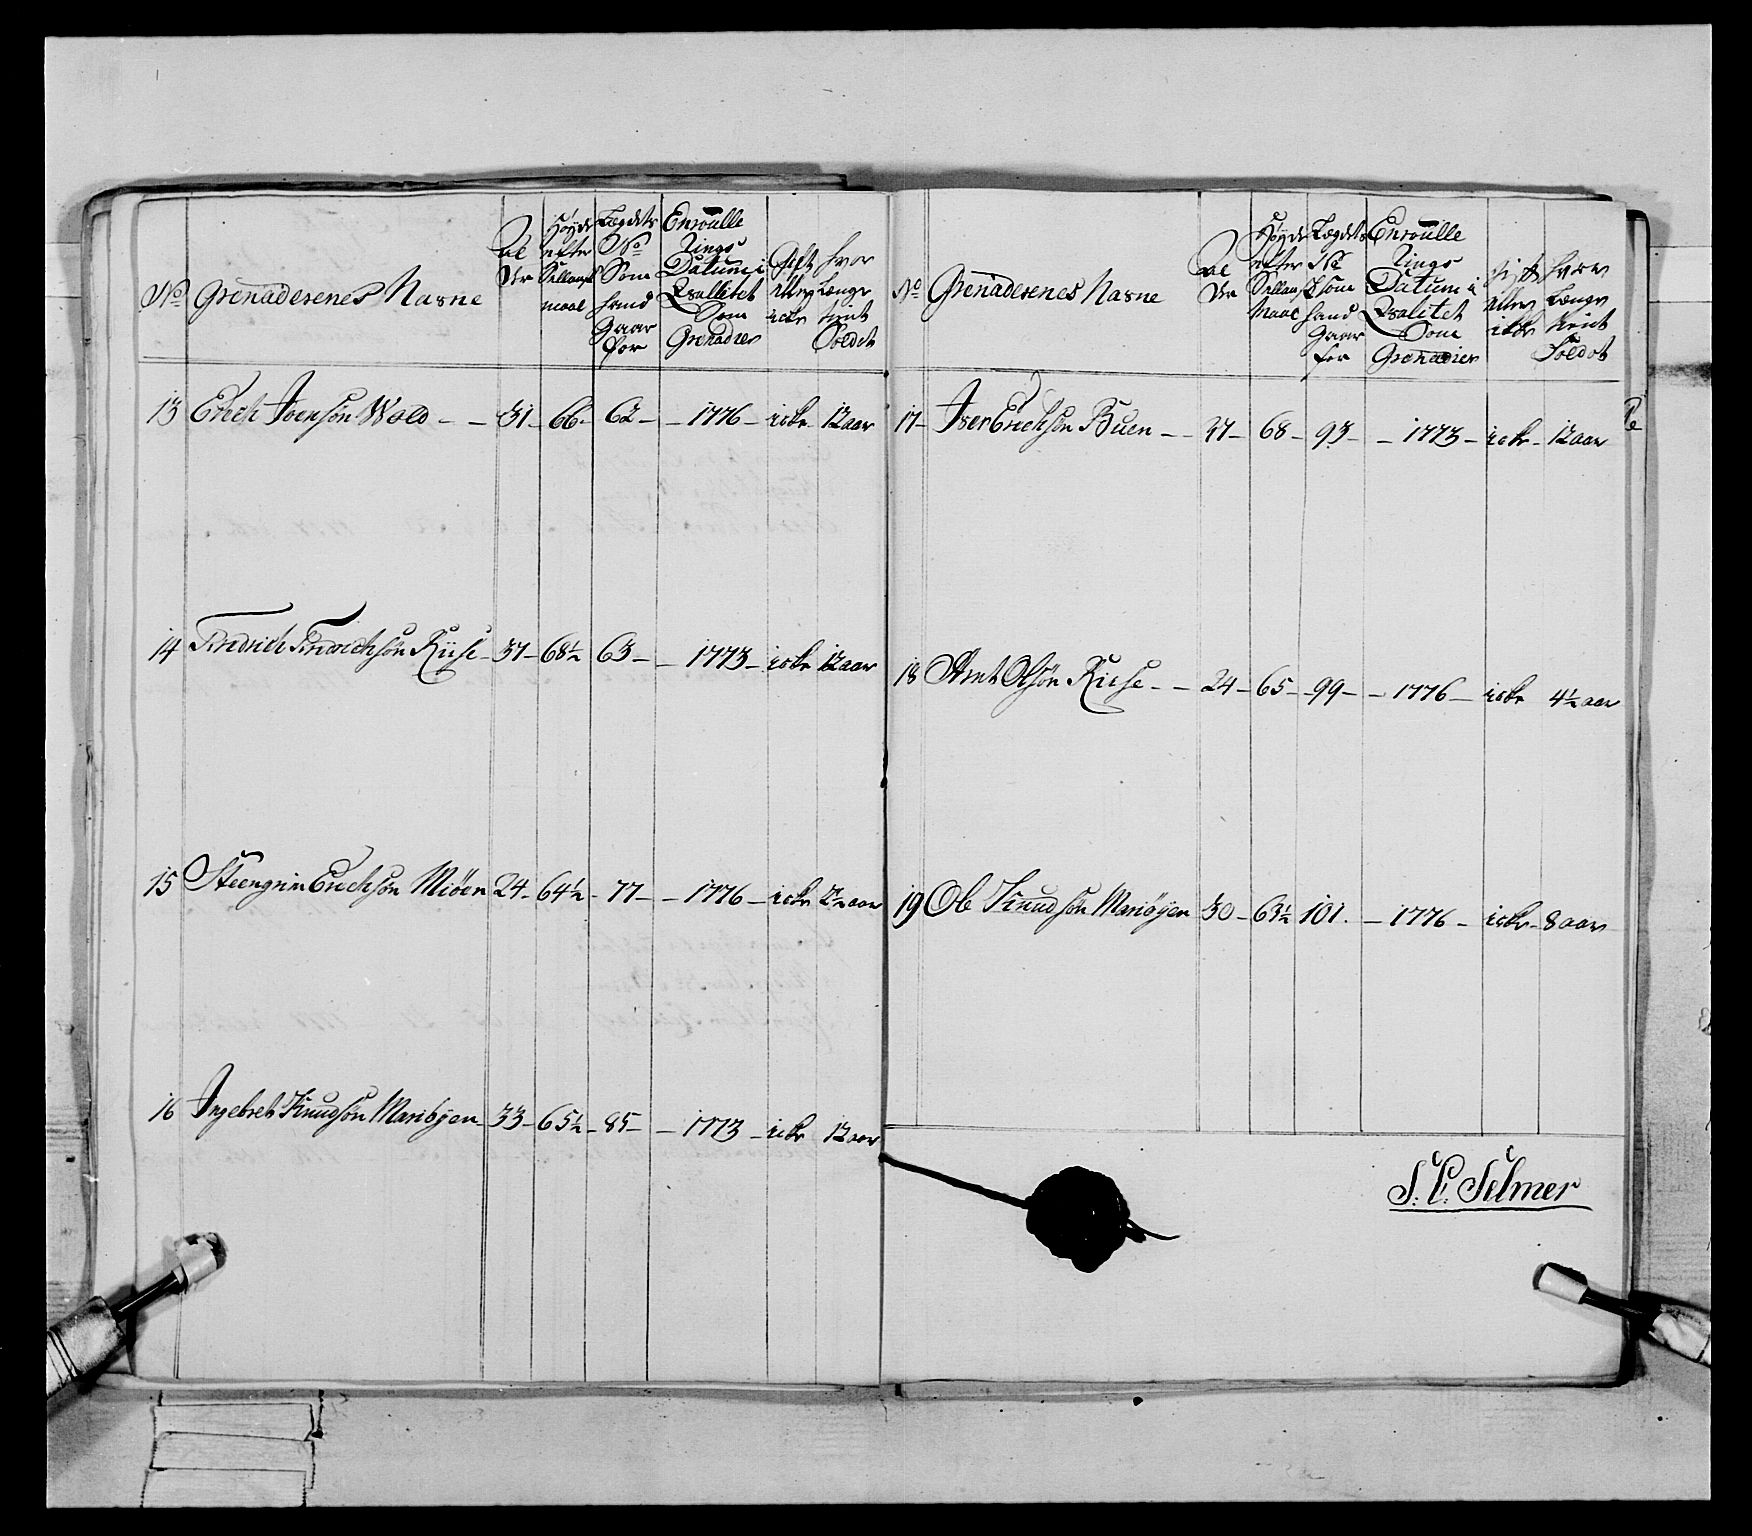 No Grenaderenes Navne
Al
der
Høyde
efter
Sellands
maal
Lægdets
No
Som
hand
Gaar
for
Enroulle
rings
Datum i
Qvallitet
Som
Grenadier
Gift
eller
icke
hvor
Længe
tient
Soldat
13 Erich Iversøn Wold - - 31 - 66 - 62 - - 1776 - icke 12 aar
14 Fredrich Fredrichsøn Riise - 37 - 68½ 63 - - 1773 - icke 12 aar
15 Steengrim Erichsøn Miöen 24 - 64½ - 77 - - 1776 - icke 2½ aar
16 Ingebret Knudsøn Mariøyen - 33 - 65½ - 85 - - 1773 - icke 12 aar
No Grenaderenes Navne
Al
der
Høyde
efter
Sellands
Maal
Lægdets
No
Som
hand
Gaar
for
Enroulle
rings
Datum i
Qvalitet
Som
Grenadier
Gift
eller
icke
hvor
Længe
tient
Soldat
17 - Iver Erichsøn Buen - - 37 - 68 - 93 - - 1773 - icke - 12 aar
18 Arnt Olsøn Riise - - 24 - 65 - 99 - - 1776 - icke 4½ aar
19 Ole Knudsøn Mariøyen 30 - 63½ 101. - 1776 - icke - 8 aar
S: C: Selmer